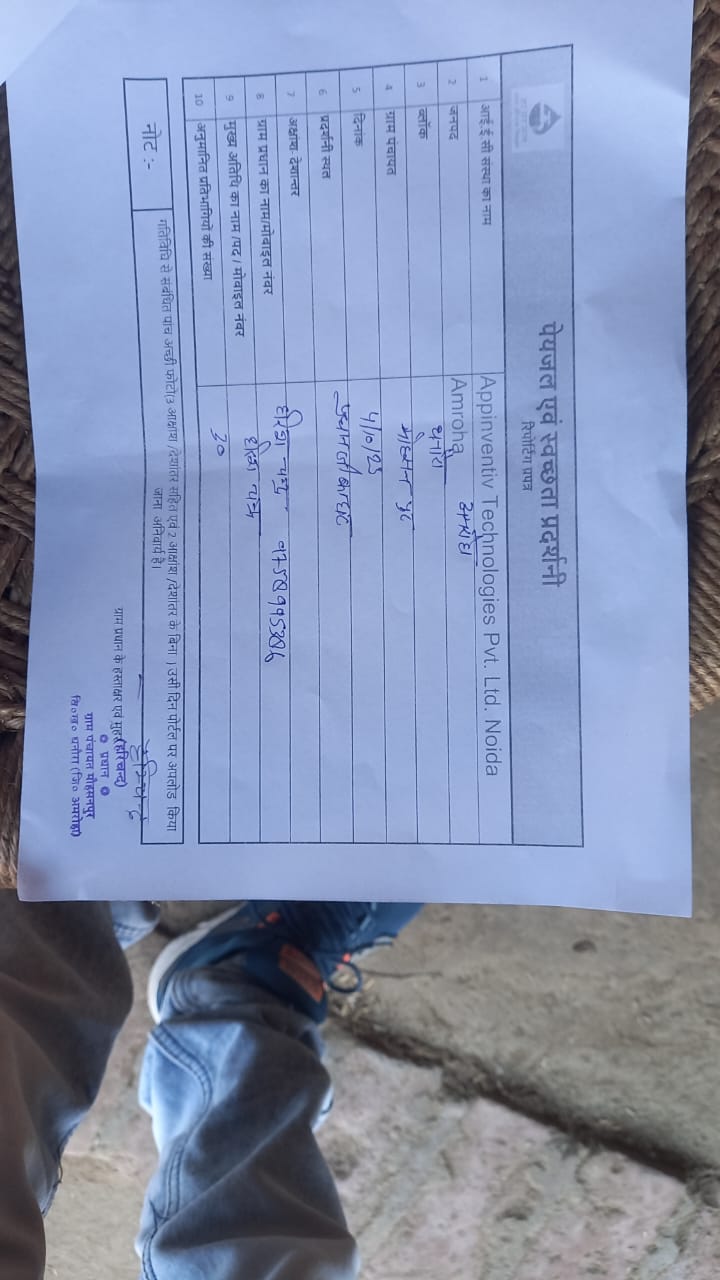 पेयजल एवं स्वच्छता प्रदर्शनी
रिपोर्टिंग प्रपत्र
1 आई.ई.सी संस्था का नाम Appinventiv Technologies Pvt. Ltd. Noida
2 जनपद Amroha अमरोहा
3 ब्लॉक धनौरा
4 ग्राम पंचायत मोहसनपुर
5 दिनांक
6 प्रदर्शनी स्थल
7 अक्षांश-देशान्तर
8 ग्राम प्रधान का नाम/मोबाइल नंबर
9 मुख्य अतिथि का नाम /पद / मोबाइल नंबर
10 अनुमानित प्रतिभागियों की संख्या 30
नोट :- गतिविधि से संबंधित पाच अच्छी फोटो(3 आक्षांश /देशांतर सहित एवं 2 आक्षांश /देशांतर के बिना ) उसी दिन पोर्टल पर अपलोड किया
जाना अनिवार्य है।
ग्राम प्रधान के हस्ताक्षर एवं मुहर
(हरिचन्द)
प्रधान
ग्राम पंचायत मोहसनपुर
वि०ख० धनौरा (जि० अमरोहा)